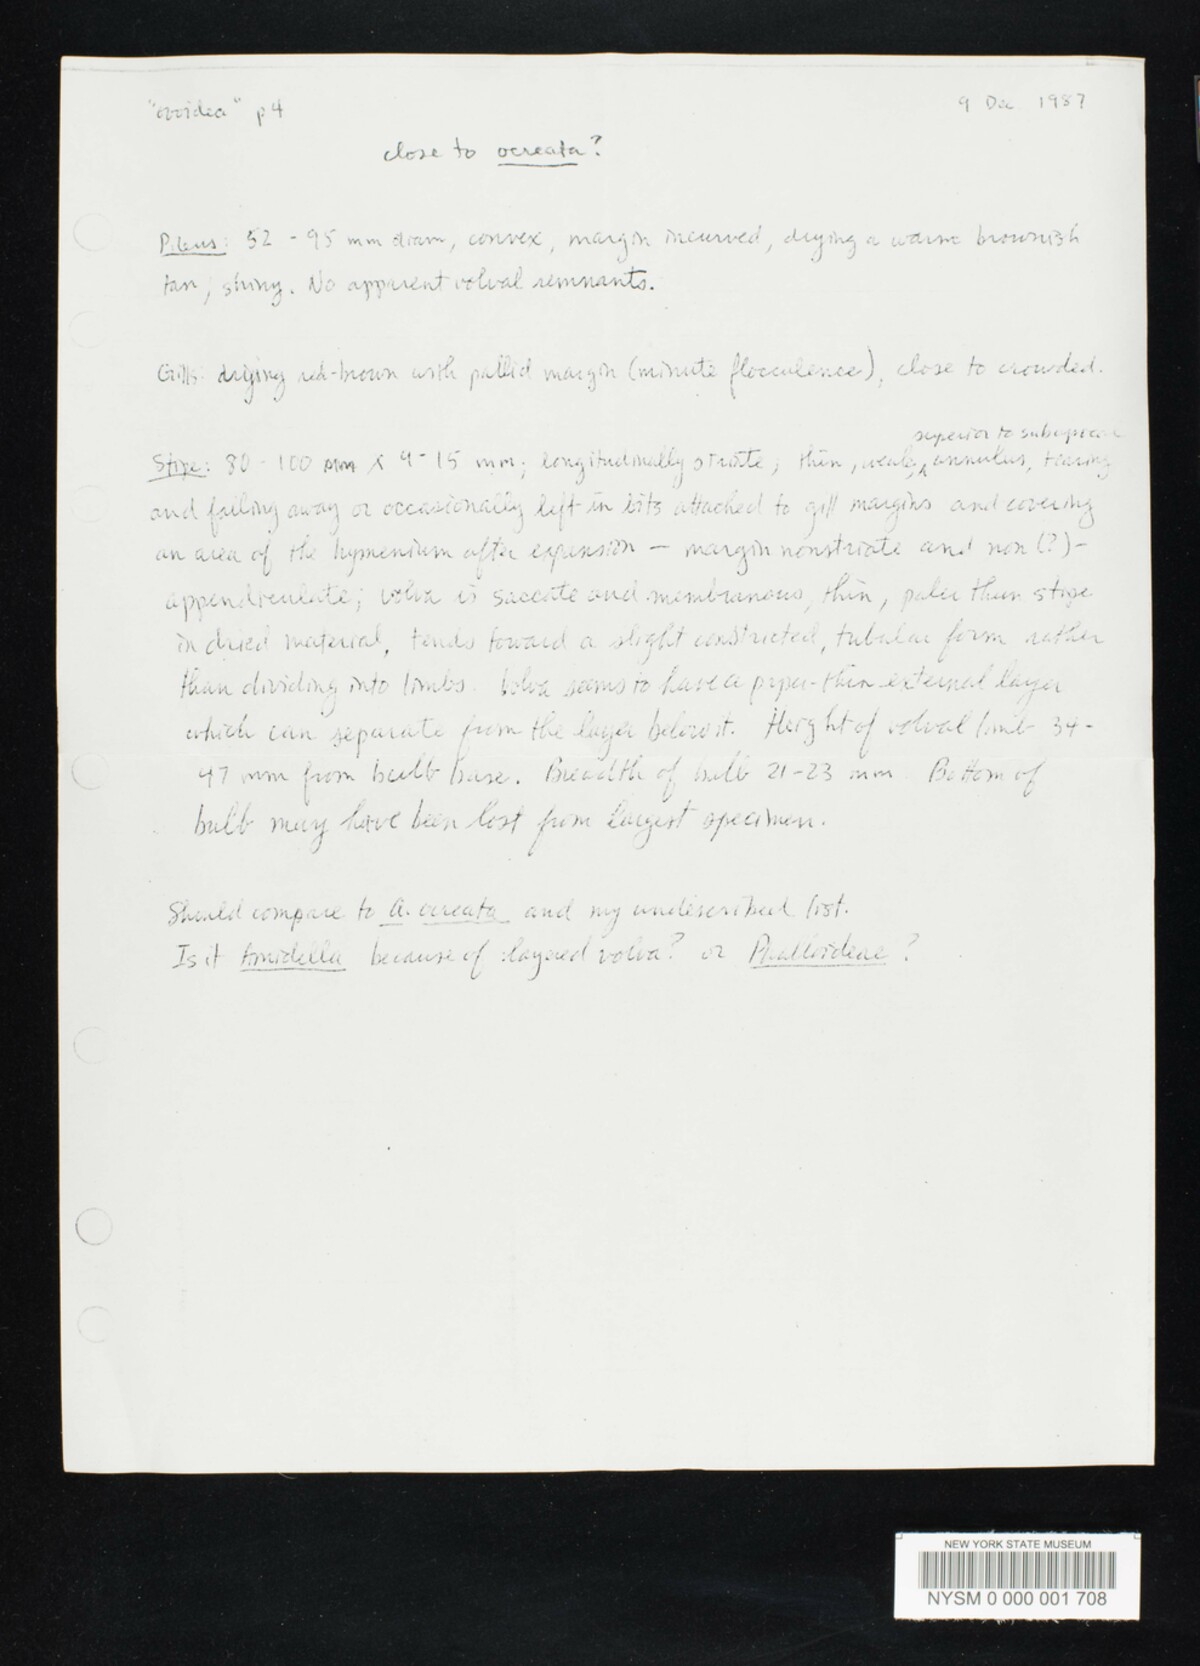 "ovoidea" p4
9 Dec 1987
close to ocreata?
Pileus: 52 - 95 mm diam, convex, margin incurved, drying a warm brownish
tan, shiny. No apparent volval remnants.
Gills: drying red-brown with pallid margin (minute flocculence), close to crowded.
superior to subsuperior
Stipe: 80 - 100 mm x 9 - 15 mm; longitudinally striate; thin, weak, annulus, tearing
and falling away or occasionally left in bits attached to gill margins and covering
an area of the hymenium after expansion — margin nonstriate and non (?)-
appendiculate; volva is saccate and membranous, thin, paler than stipe
in dried material, tends toward a slight constricted, tubular form rather
than dividing into limbs. Volva seems to have a paper-thin external layer
which can separate from the layer below it. Height of volval limb 34-
47 mm from bulb base. Breadth of bulb 21-23 mm. Bottom of
bulb may have been lost from largest specimen.
Should compare to A. ocreata and my undescribed list.
Is it Amidella because of layered volva? or Phalloideae?
NEW YORK STATE MUSEUM
NYSM 0 000 001 708